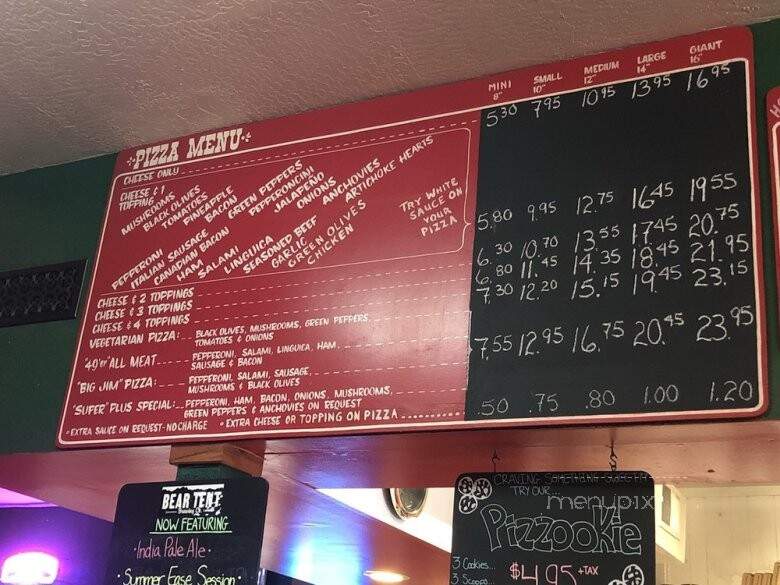 PIZZA MENU
MINI 8" SMALL 10" MEDIUM 12" LARGE 14" GIANT 16"
CHEESE ONLY 5.30 7.95 10.95 13.95 16.95
CHEESE & 1
TOPPING
MUSHROOMS
BLACK OLIVES
TOMATOES
PINEAPPLE
BACON
GREEN PEPPERS
PEPPERONCINI
JALAPEÑO
ONIONS
ANCHOVIES
ARTICHOKE HEARTS
PEPPERONI
ITALIAN SAUSAGE
CANADIAN BACON
HAM
SALAMI
LINGUICA
SEASONED BEEF
GARLIC
GREEN OLIVES
CHICKEN
TRY WHITE
SAUCE ON
YOUR
PIZZA
5.80 9.95 12.75 16.45 19.55
CHEESE & 2 TOPPINGS 6.30 10.70 13.55 17.45 20.75
CHEESE & 3 TOPPINGS 6.80 11.45 14.35 18.45 21.95
CHEESE & 4 TOPPINGS 7.30 12.20 15.15 19.45 23.15
VEGETARIAN PIZZA: BLACK OLIVES, MUSHROOMS, GREEN PEPPERS,
TOMATOES & ONIONS
"49'er" ALL MEAT PEPPERONI, SALAMI, LINGUICA, HAM,
SAUSAGE & BACON
7.55 12.95 16.75 20.45 23.95
"BIG JIM" PIZZA: PEPPERONI, SALAMI, SAUSAGE,
MUSHROOMS & BLACK OLIVES
"SUPER" PLUS SPECIAL: PEPPERONI, HAM, BACON, ONIONS, MUSHROOMS,
GREEN PEPPERS & ANCHOVIES ON REQUEST
• EXTRA SAUCE ON REQUEST-NO CHARGE • EXTRA CHEESE OR TOPPING ON PIZZA .50 .75 .80 1.00 1.20
BEAR TENT
NOW FEATURING
• India Pale Ale •
• Summer Ease Session •
CRAVING SOMETHING SWEET?
TRY OUR...
menupix
Pizzookie
3 Cookies...
3 Scoops...
$4.95 +TAX